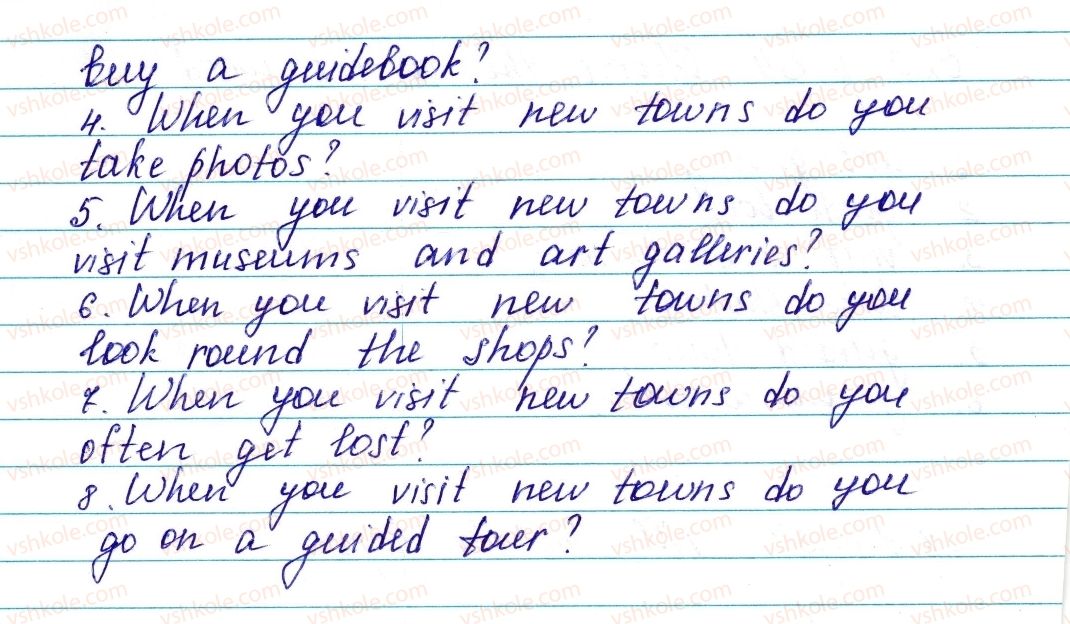 buy a guidebook?
4. When you visit new towns do you
take photos?
5. When you visit new towns do you
visit museums and art galleries?
6. When you visit new towns do you
look round the shops?
7. When you visit new towns do you
often get lost?
8. When you visit new towns do you
go on a guided tour?